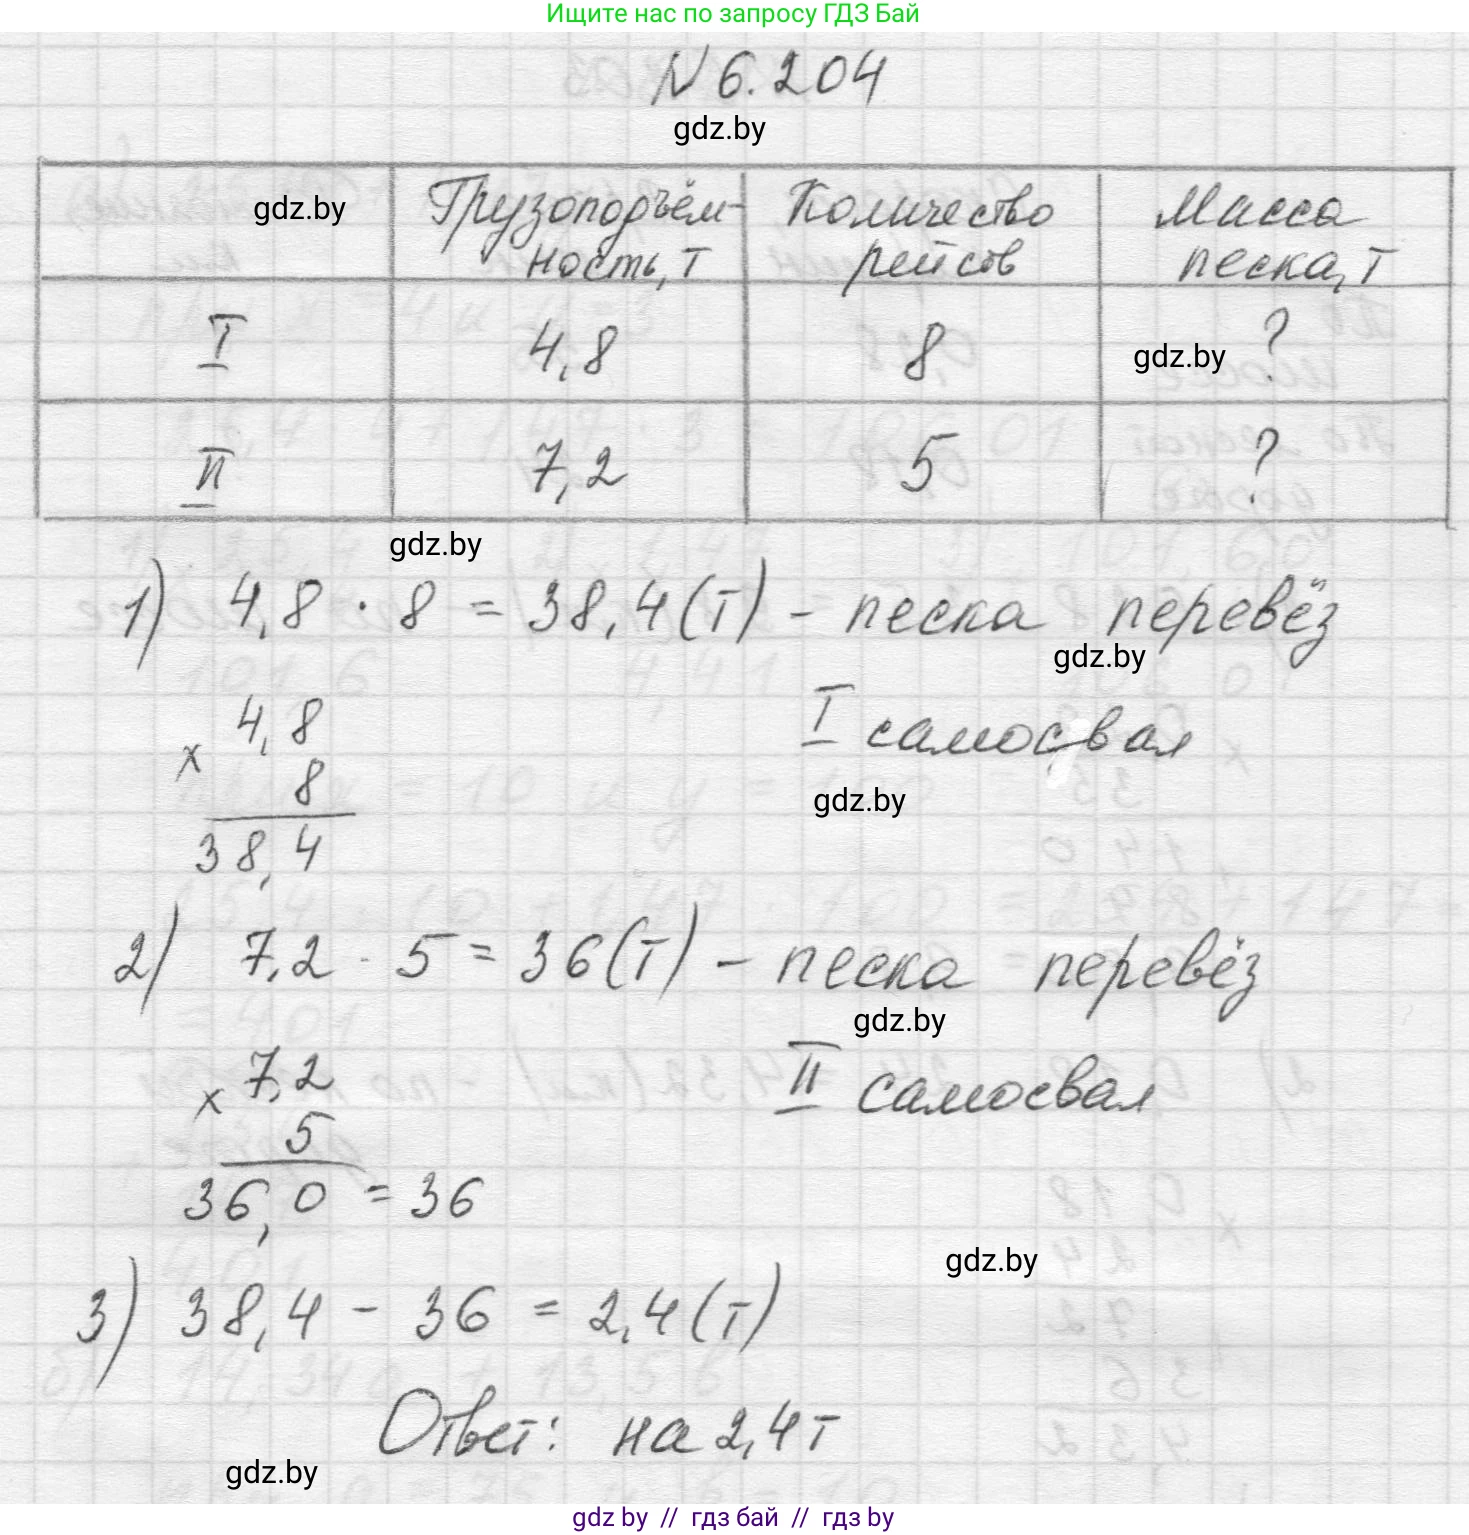 Ищите нас по запросу ГДЗ Бай
№ 6.204
gdz.by
gdz.by Грузоподъём- Количество Масса
ность, т рейсов песка, т
I 4,8 8 gdz.by ?
II 7,2 5 ?
gdz.by
1) 4,8 · 8 = 38,4 (т) - песка перевёз
gdz.by
I самосвал
4,8
×
8
gdz.by
38,4
2) 7,2 · 5 = 36 (т) - песка перевёз
gdz.by
II самосвал
7,2
×
5
36,0 = 36
gdz.by
3) 38,4 - 36 = 2,4 (т)
Ответ: на 2,4 т
gdz.by
gdz by // гдз бай // гдз by